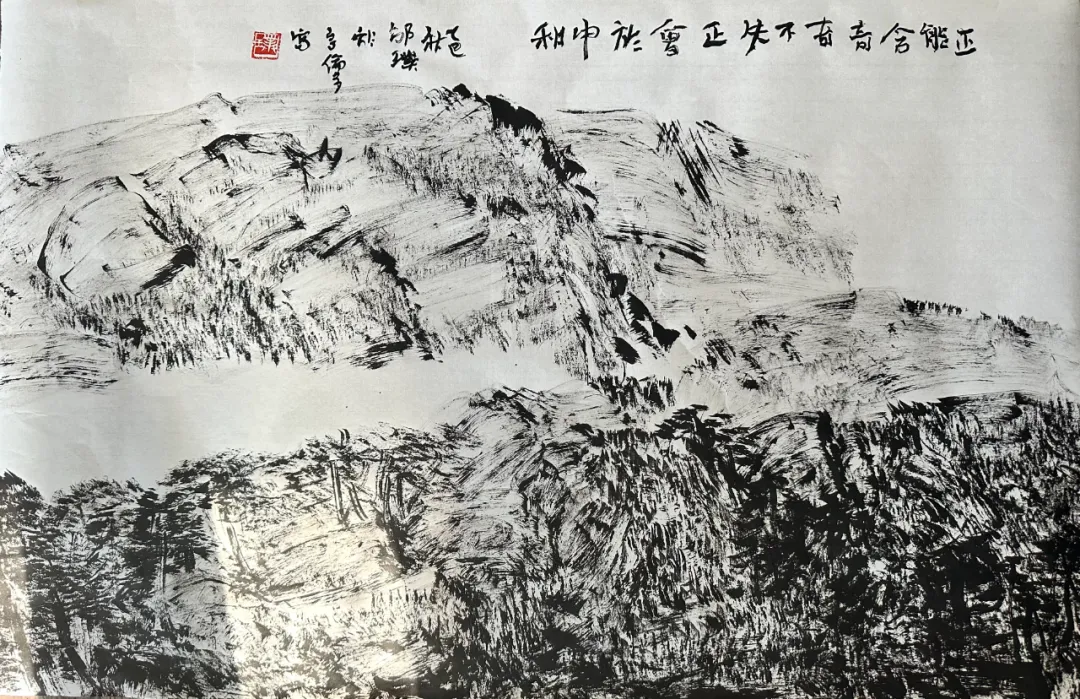 正能含奇奇不失正會於中和
乙巳
秋
邹璞
於
寫